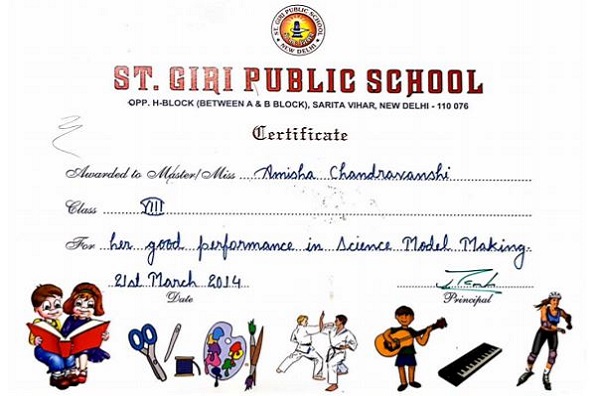 ST. GIRI PUBLIC SCHOOL
NEW DELHI
ST. GIRI PUBLIC SCHOOL
OPP. H-BLOCK (BETWEEN A & B BLOCK), SARITA VIHAR, NEW DELHI - 110 076
Certificate
Awarded to Master/Miss Amisha Chandravanshi
Class VIII
For her good performance in Science Model Making.
21st March 2014
Date Principal